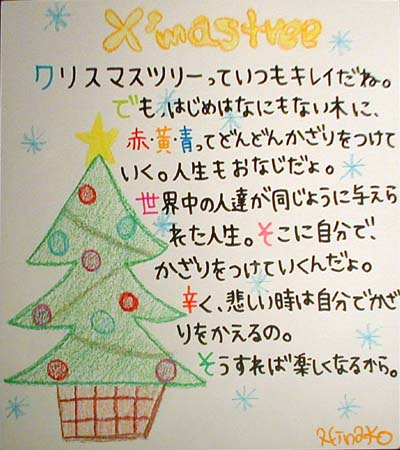 X'mastree
クリスマスツリーっていつもキレイだね。
でも、はじめはなにもない木に、
赤・黄・青ってどんどんかざりをつけて
いく。人生もおなじだよ。
世界中の人達が同じように与えら
れた人生。そこに自分で、
かざりをつけていくんだよ。
辛く、悲しい時は自分でかざ
りをかえるの。
そうすれば楽しくなるから。
Hinako